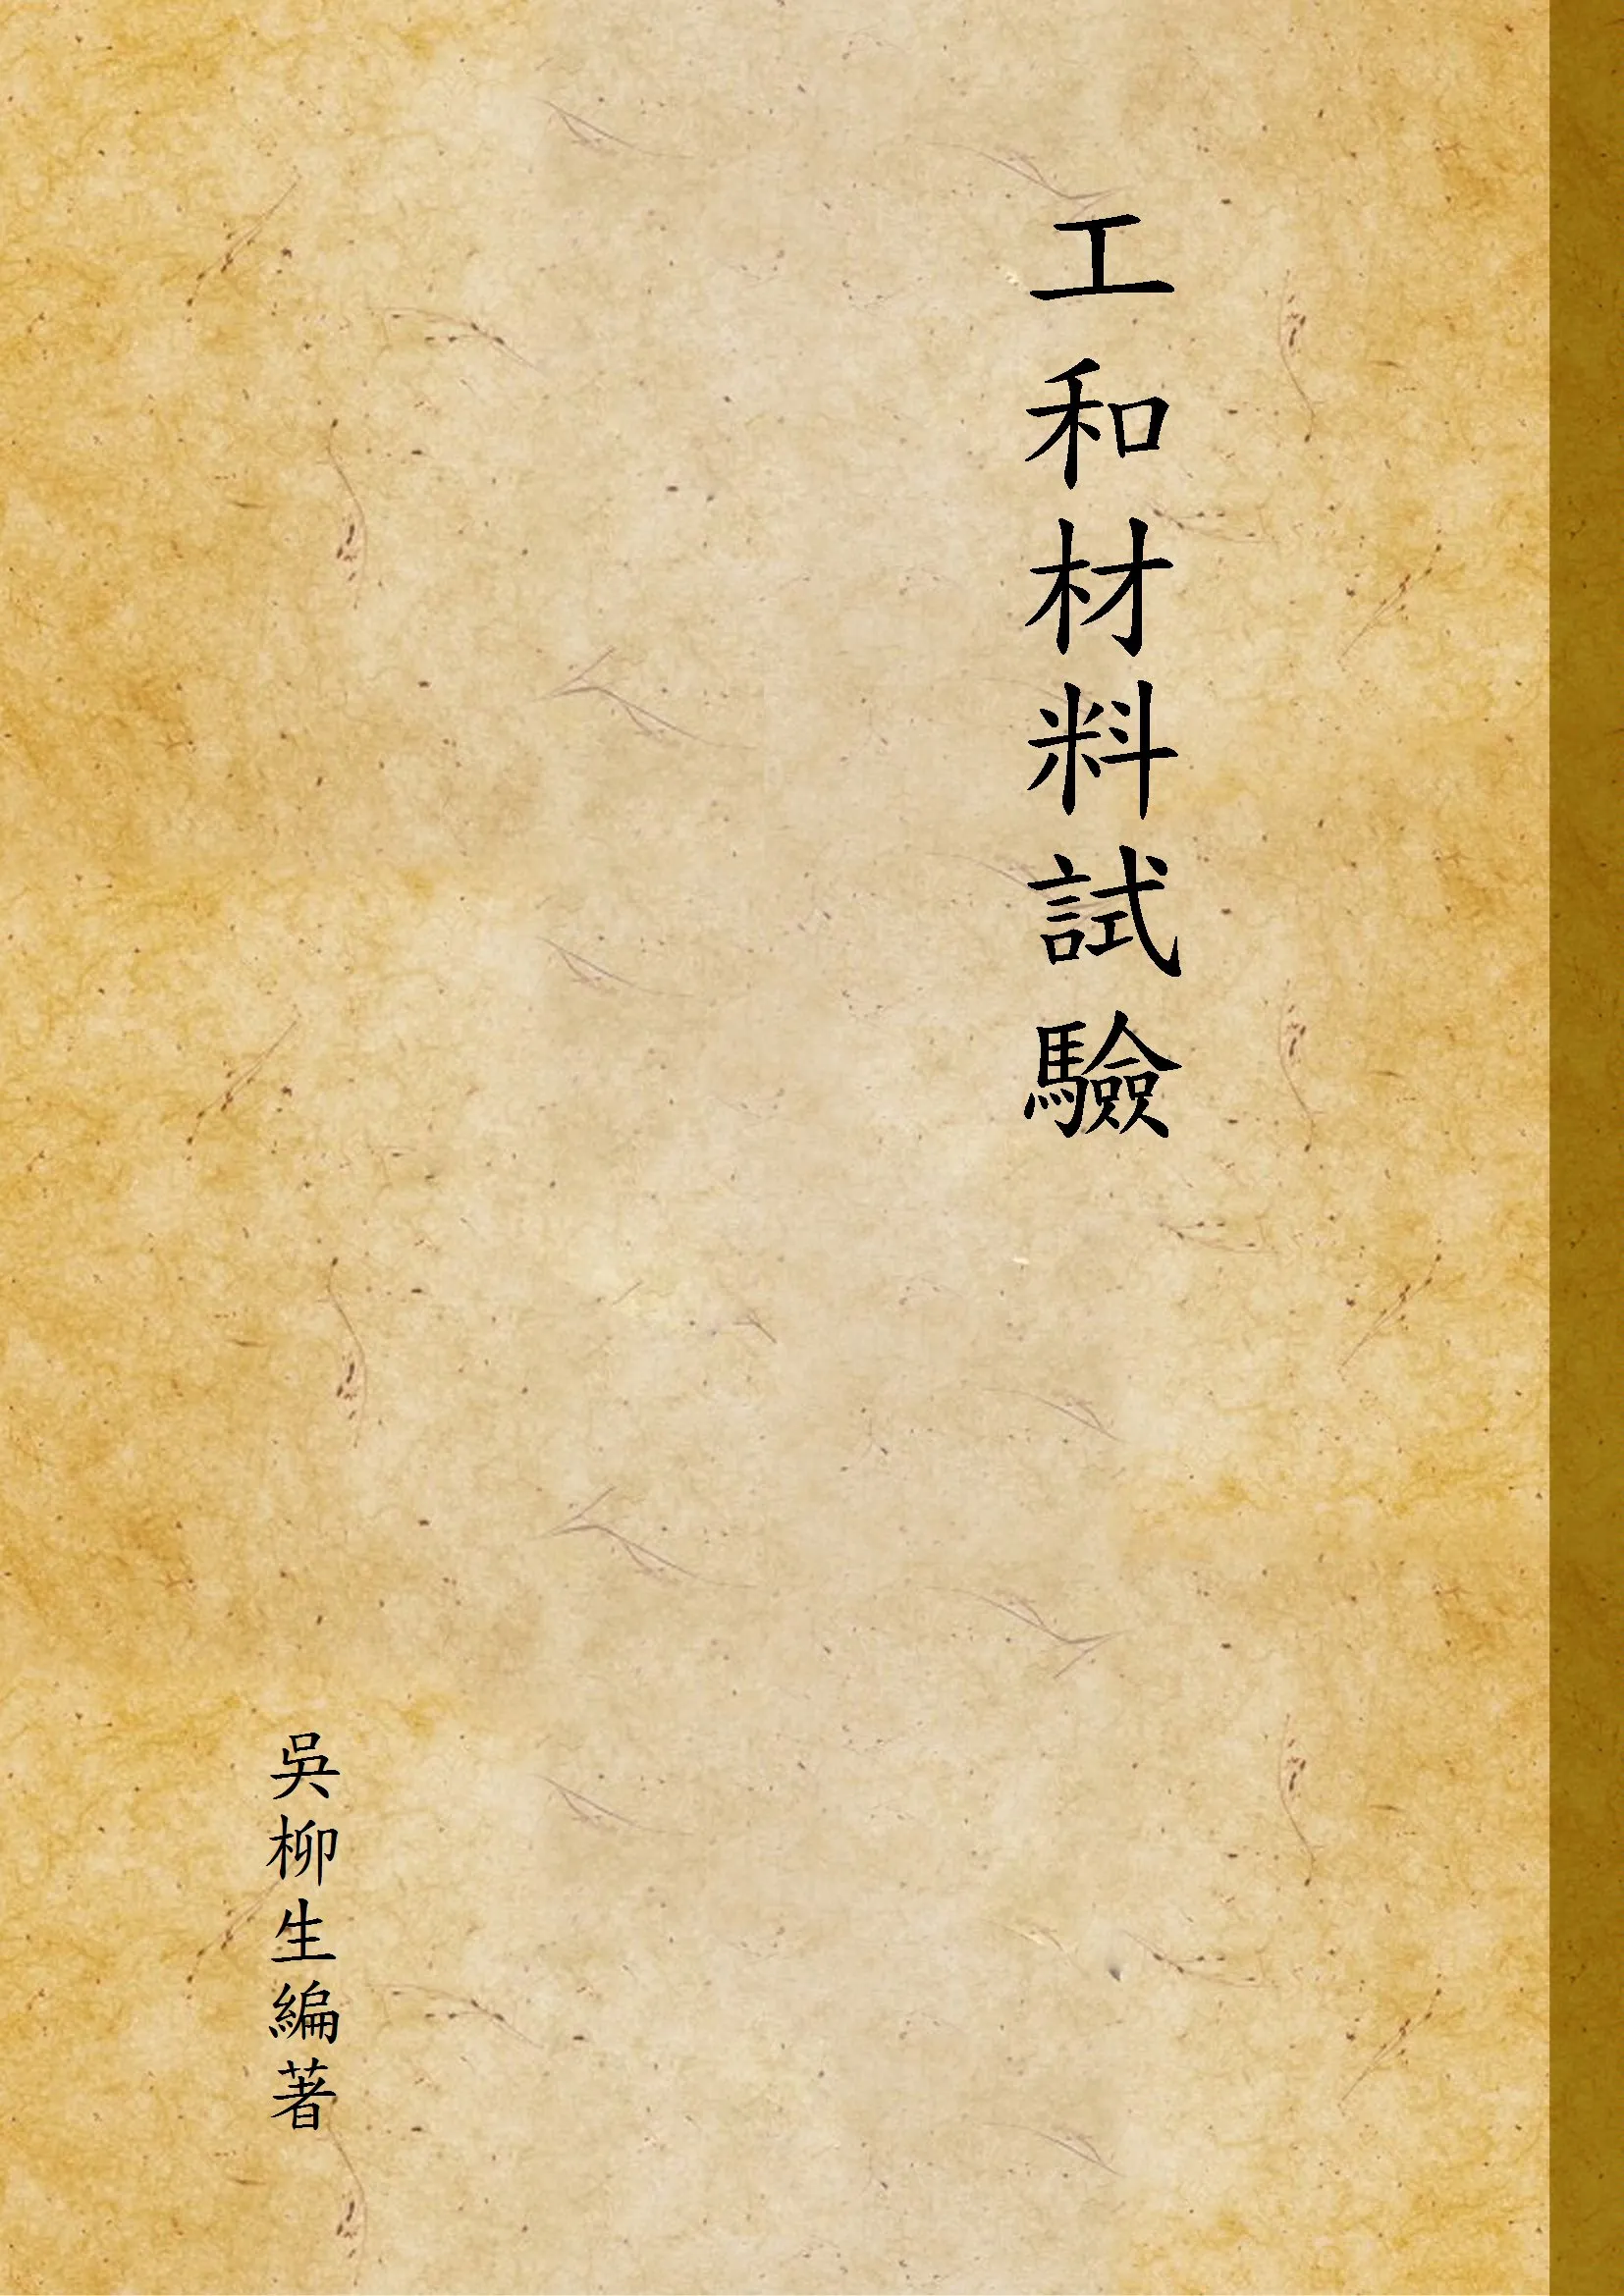 工和材料試驗
吳柳生編著